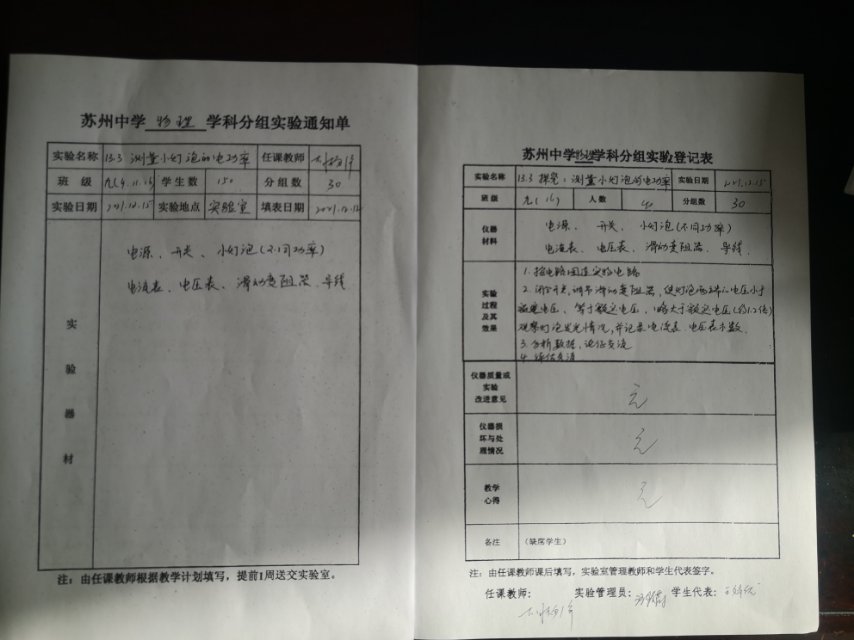 苏州中学 物理 学科分组实验通知单
实验名称 13.3 测量小灯泡的电功率 任课教师
班 级 九(4.11.16) 学生数 150 分组数 30
实验日期 2021.12.15 实验地点 实验室 填表日期 2021.12.12
实验器材
电源、开关、小灯泡(不同功率)
电流表、电压表、滑动变阻器、导线
注：由任课教师根据教学计划填写，提前1周送交实验室。
苏州中学物理学科分组实验登记表
实验名称 13.3 探究：测量小灯泡的电功率 实验日期 2021.12.15
班 级 九(16) 人数 40 分组数 30
仪器材料
电源、开关、小灯泡(不同功率)
电流表、电压表、滑动变阻器、导线.
实验过程及其效果
1. 按电路图连实物电路
2. 闭合开关,调节滑动变阻器,使灯泡两端的电压小于
额定电压、等于额定电压、略大于额定电压(约1.2倍)
观察灯泡发光情况,并记录电流表、电压表示数.
3. 分析数据、论证交流
4. 评估交流
仪器质量或实验改进意见 无
仪器损坏与处理情况 无
教学心得 无
备注 (缺席学生)
注：由任课教师课后填写，实验室管理教师和学生代表签字。
任课教师： 实验管理员： 学生代表：